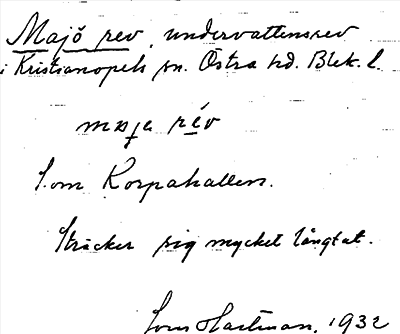 Majö rev, undervattensrev
i Kristianopels sn. Östra hd. Blek. l.
maja rév
S.om Korpahallen.
Sträcker sig mycket långt ut.
Hartman. 1932